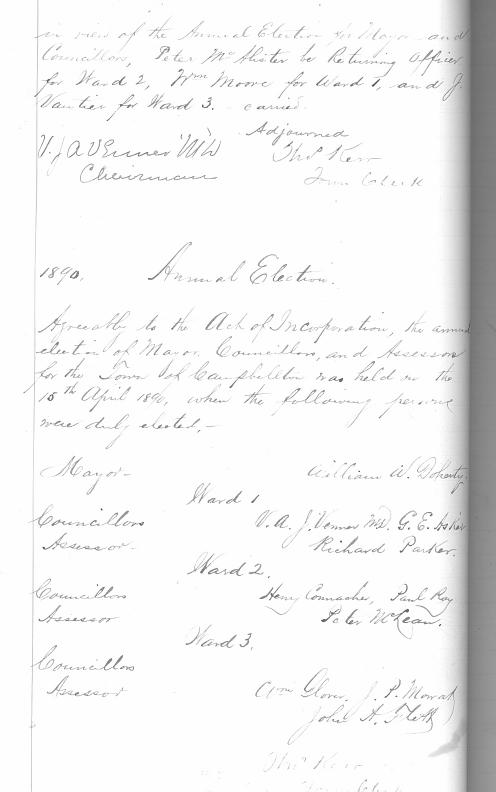 in view of the Annual Election for Mayor and
Councillors, Peter McAlister be Returning Officer
for Ward 2, Wm Moore for Ward 1, and J.
Vautier for Ward 3. - carried.
Adjourned
V. J. A Venner MD Thos Kerr
Chairman Town Clerk
1890. Annual Election.
Agreeable to the Act of Incorporation, the annual
election of Mayor, Councillors, and Assessors
for the Town of Campbellton was held on the
15th April 1890, when the following persons
were duly elected,-
Mayor- William W. Doherty
Ward 1
Councillors V. A. J. Venner MD, G. E. Asker
Assessor. Richard Parker.
Ward 2.
Councillors Henry Connacher, Paul Roy
Assessor Peter McLean.
Ward 3.
Councillors
Assessor Wm Glover, J. P. Mowat
John A.
Thos Kerr
Town Clerk